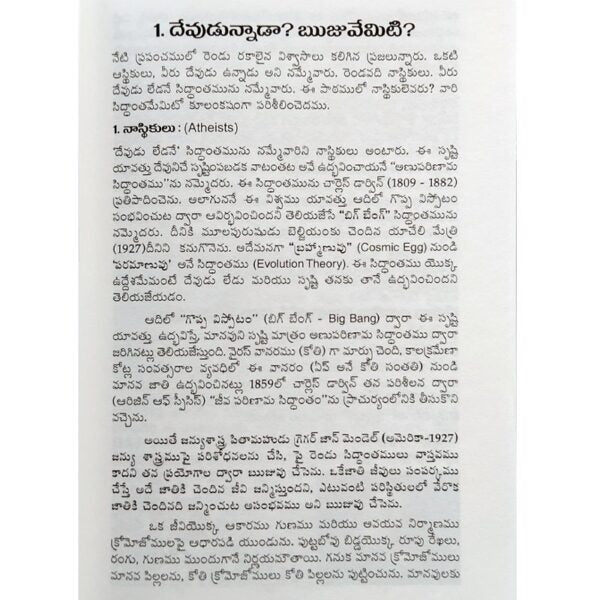 1. దేవుడున్నాడా? ఋజువేమిటి?
నేటి ప్రపంచములో రెండు రకాలైన విశ్వాసాలు కలిగిన ప్రజలున్నారు. ఒకటి
ఆస్థికులు, వీరు దేవుడు ఉన్నాడు అని నమ్మేవారు. రెండవది నాస్థికులు. వీరు
దేవుడు లేడనే సిద్ధాంతమును నమ్మేవారు. ఈ పాఠములో నాస్థికులెవరు? వారి
సిద్ధాంతమేమిటో కూలంకషంగా పరిశీలించెదము.
1. నాస్థికులు : (Atheists)
'దేవుడు లేడనే' సిద్ధాంతమును నమ్మేవారిని నాస్థికులు అంటారు. ఈ సృష్టి
యావత్తు దేవునిచే సృష్టింపబడక వాటంతట అవే ఉద్భవించాయనే "అణుపరిణామ
సిద్ధాంతము"ను నమ్మెదరు. ఈ సిద్ధాంతమును చార్లెస్ డార్విన్ (1809 - 1882)
ప్రతిపాదించెను. అలాగుననే ఈ విశ్వము యావత్తు ఆదిలో గొప్ప విస్ఫోటం
సంభవించుట ద్వారా ఆవిర్భవించిందని తెలియజేసే "బిగ్ బేంగ్" సిద్ధాంతమును
నమ్మెదరు. దీనికి మూలపురుషుడు బెల్జియంకు చెందిన యాచేలి మేత్రి
(1927)దీనిని కనుగొనెను. అదేమనగా "బ్రహ్మాణువు" (Cosmic Egg) నుండి
'పరమాణువు' అనే సిద్ధాంతము (Evolution Theory). ఈ సిద్ధాంతము యొక్క
ఉద్దేశమేమంటే దేవుడు లేడు మరియు సృష్టి తనకు తానే ఉద్భవించిందని
తెలియజేయడం.
ఆదిలో "గొప్ప విస్ఫోటం" (బిగ్ బేంగ్ - Big Bang) ద్వారా ఈ సృష్టి
యావత్తు ఉద్భవిస్తే, మానవుని సృష్టి మాత్రం అణుపరిణామ సిద్ధాంతము ద్వారా
జరిగినట్లు తెలియజేస్తుంది. వైరస్ వానరము (కోతి) గా మార్పు చెంది, కాలక్రమేణా
కోట్ల సంవత్సరాల వ్యవధిలో ఈ వానరం (ఏప్ అనే కోతి సంతతి) నుండి
మానవ జాతి ఉద్భవించినట్లు 1859లో చార్లెస్ డార్విన్ తన పరిశీలన ద్వారా
(ఆరిజిన్ ఆఫ్ స్పీసిస్) "జీవ పరిణామ సిద్ధాంతం"ను ప్రాచుర్యంలోనికి తీసుకొని
వచ్చెను.
అయితే జన్యుశాస్త్ర పితామహుడు గ్రెగర్ జాన్ మెండెల్ (అమెరికా-1927)
జన్యు శాస్త్రముపై పరిశోధనలను చేసి, పై రెండు సిద్ధాంతములు వాస్తవము
కాదని తన ప్రయోగాల ద్వారా ఋజువు చేసెను. ఒకేజాతి జీవులు సంపర్కము
చేస్తే అదే జాతికి చెందిన జీవి జన్మిస్తుందని, ఎటువంటి పరిస్థితులలో వేరొక
జాతికి చెందినవది జన్మించుట అసంభవము అని ఋజువు చేసెను.
ఒక జీవియొక్క ఆకారము గుణము మరియు అవయవ నిర్మాణము
క్రోమోజోములపై ఆధారపడి యుండును. పుట్టబోవు బిడ్డయొక్క రూపు రేఖలు,
రంగు, గుణము ముందుగానే నిర్ణయమౌతాయి. గనుక మానవ క్రోమోజోములు
మానవ పిల్లలను, కోతి క్రోమోజోములు కోతి పిల్లలను పుట్టించును. మానవులకు